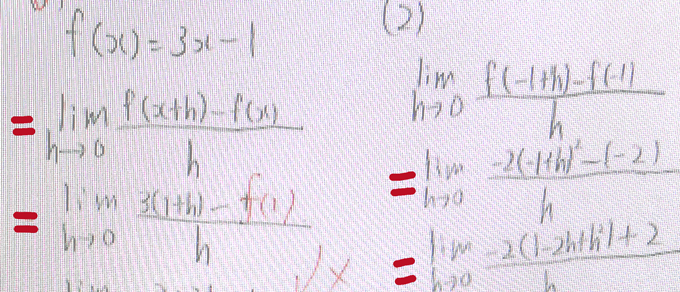 f(x)=3x-1
= lim h→0 f(x+h)-f(x) / h
= lim h→0 3(1+h)-f(1) / h
lim
(2)
lim h→0 f(-1+h)-f(-1) / h
= lim h→0 -2(-1+h)²-(-2) / h
= lim h→0 -2(1-2h+h²)+2 / h